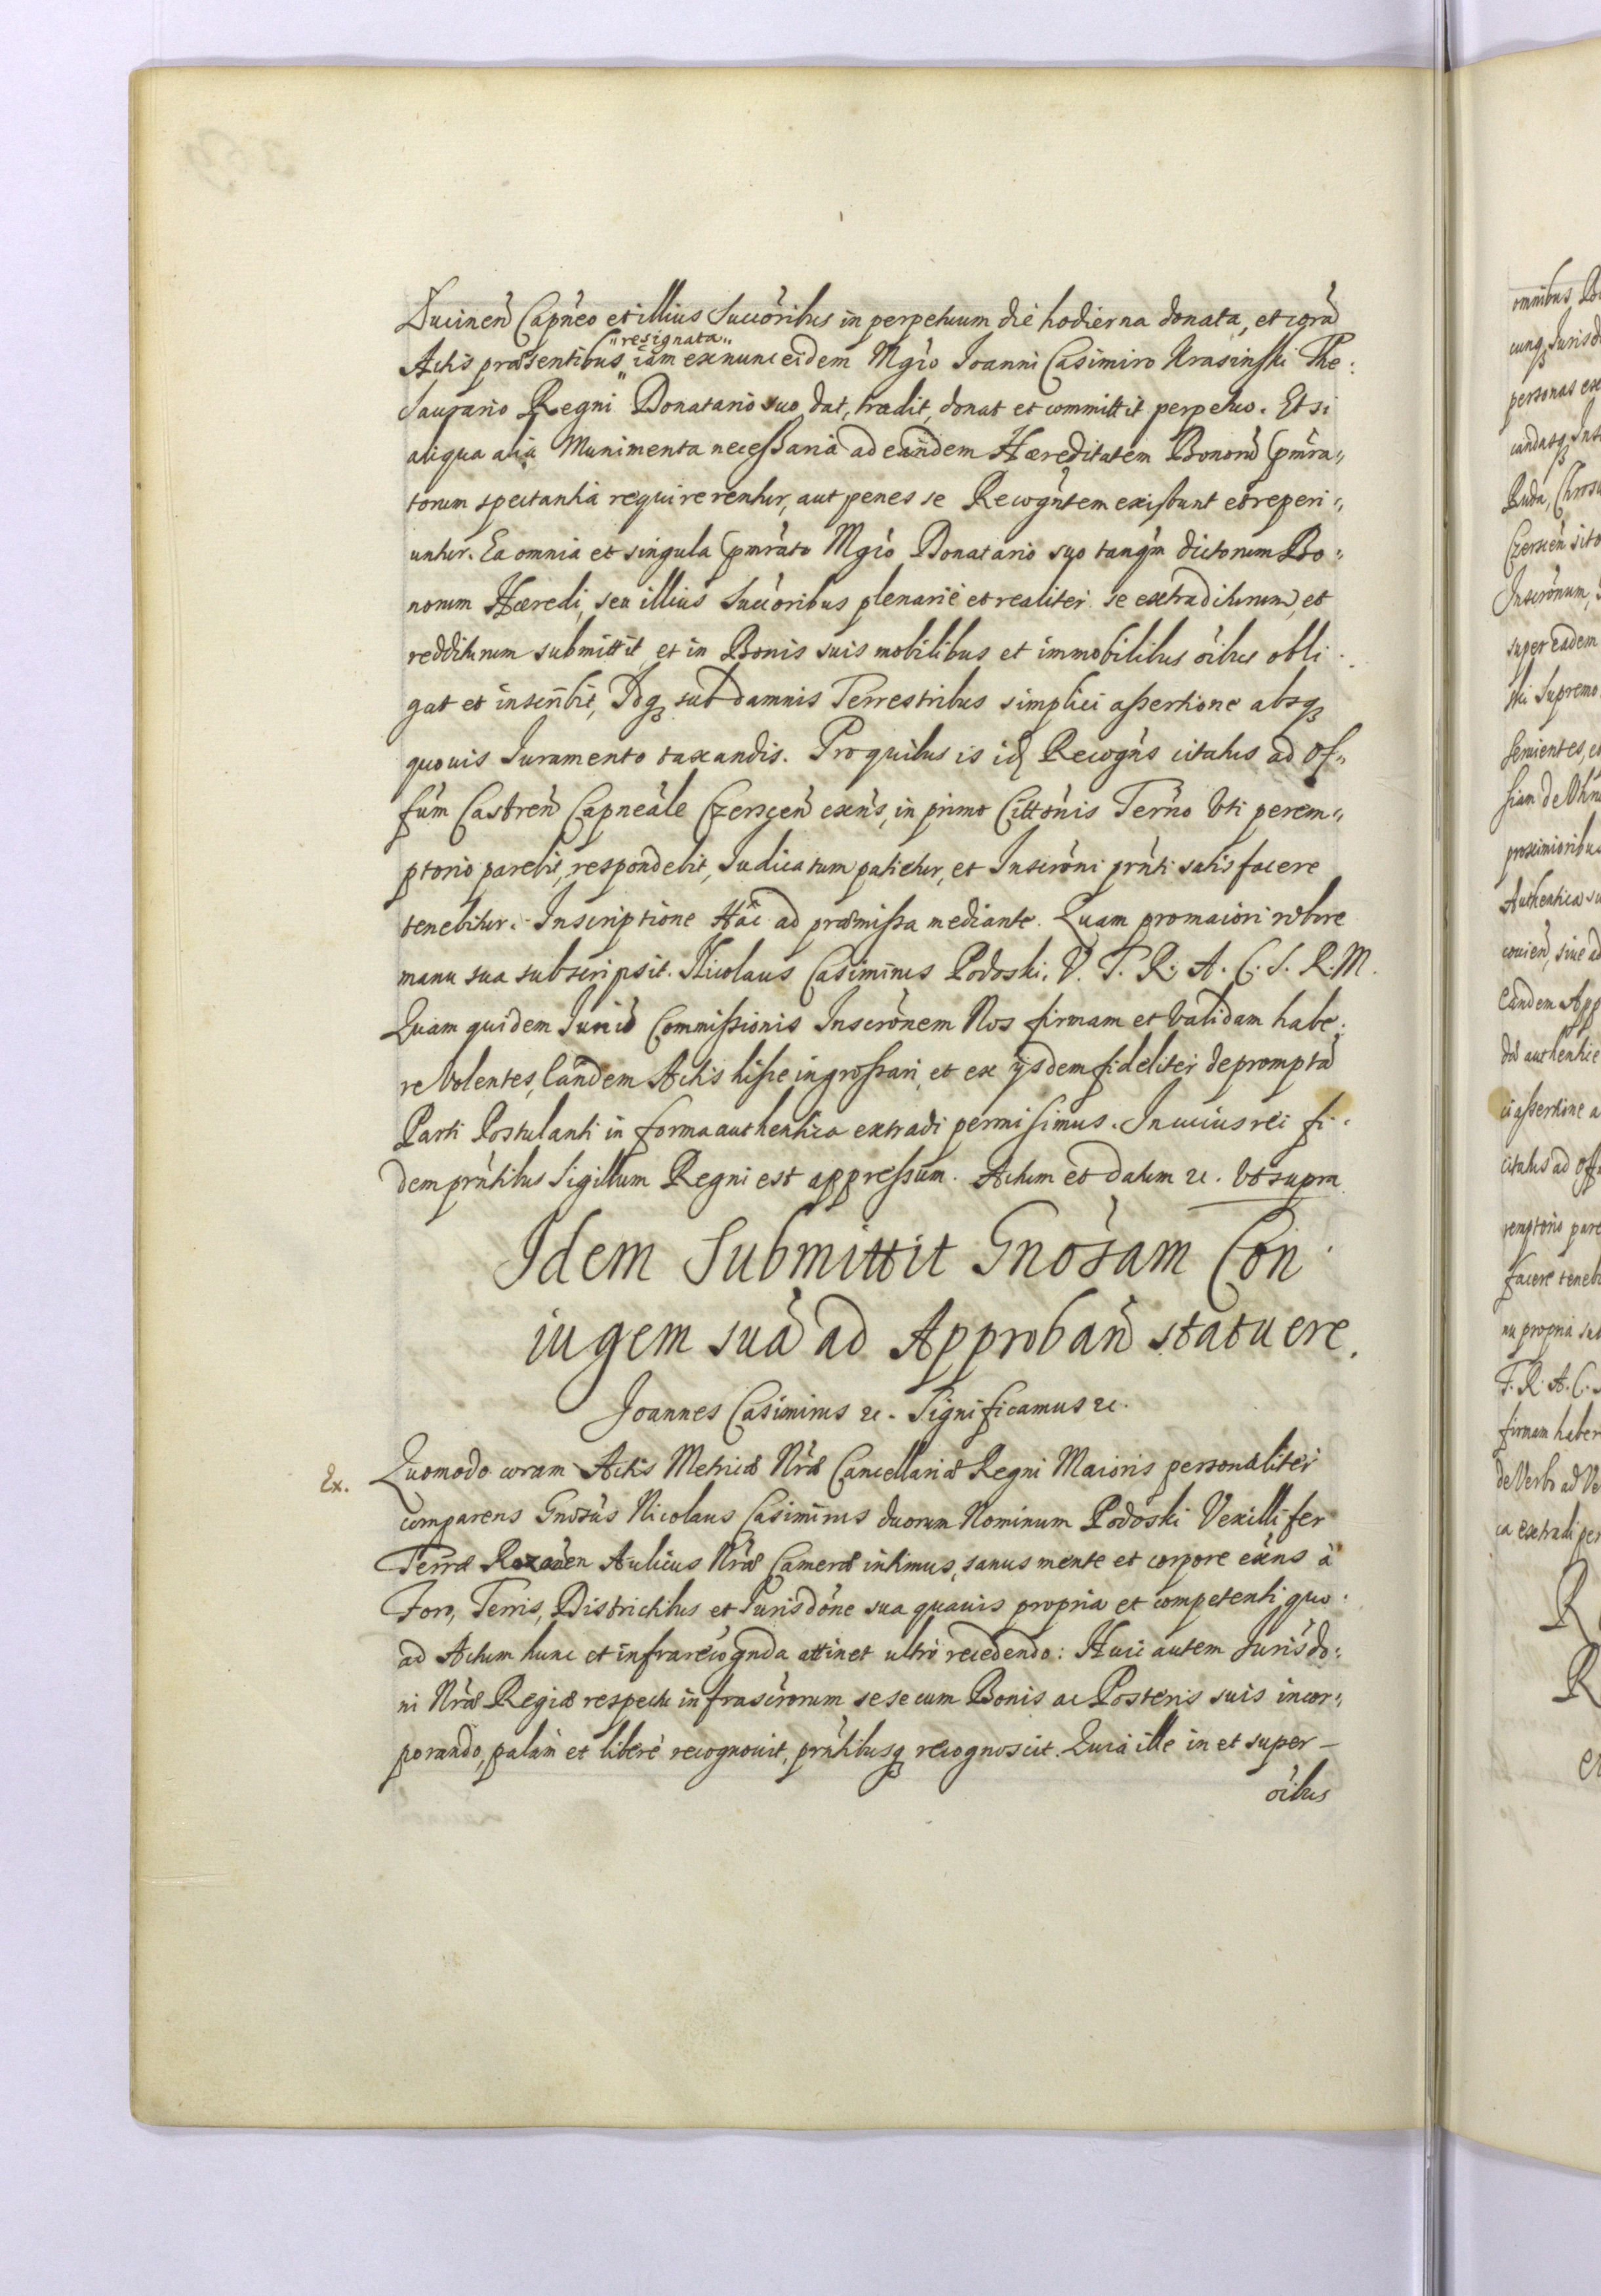 Ducinen̄ Capn̄eo et illius Succōribus in perpetuum die hodierna donata, et corā
„resignata„
Actis præsentibus „ iam ex nunc eidem Mgīo Joanni Casimiro Krasinski The:
Saurario Regni Donatario suo dat, tradit, donat et committit perpetuo. Et si
aliqua alia Munimenta necessaria ad eandem Hæreditatem Bonorū pmīra„
torum spectantia requirerentur, aut penes se Recogn̄tem existunt et reperi„
untur. Ea omnia et singula pmīrato Mgīo Donatario suo tanqm̄ dictorum Bo„
norum Hæredi, seu illius Succōribus plenarie et realiter se extraditurum, et
redditurum submittit, et in Bonis suis mobilibus et immobilibus oībus obli:
gat et inscribit, Idq3 sub damnis Terrestribus simplici assertione absq3
quouis Iuramento taxandis. Pro quibus is id̄ Recogn̄s citatus ad Of„
fūm Castren̄ Capneāle Czerscen̄ exn̄s, in primo Cittōnis Term̄o Vti perem„
ptorio parebit, respondebit, Iudicatum patietur, et Inscrōni prn̄ti satisfacere
tenebitur. Inscriptione Hac ad præmissa mediante. Quam pro maiori robore
manu sua subscripsit. Nicolaus Casimirus Podoski. V. T. R. A. C. S. R. M.
Quam quidem Commissionis Inscrōnem Nos firmam et Validam habe:
re Volentes, Eandem Actis hisce ingrossari, et ex ijsdem fideliter depromptā
Parti Postulanti in forma authentica extradi permisimus. In cuius rei fi:
dem prn̄tibus Sigillum Regni est appressum. Actum et Datum rc. Vt supra
Idem Submittit Gnōsam Con
iugem suā ad Approban̄ statuere.
Joannes Casimirus rc. Significamus rc.
Ex.
Quomodo coram Actis Metricæ Nr̄æ Cancellariæ Regni Maioris personaliter
comparens Gnōsus Nicolaus Casimirus duorum Nominum Podoski Vexillifer
Terræ Rozanen Aulicus Nr̄æ Cameræ intimus, sanus mente et corpore exn̄s à
Foro, Terris, Districtibus et Jurisdōne sua quauis propria et competenti, quo
ad Actum hunc et infrarecognd̄a attinet ultrò recedendo: Huic autem Jurisdō:
ni Nr̄æ Regiæ respectu infrascr̄orum sese cum Bonis ac Posteris suis incor„
porando, palam et liberè recognouit, prn̄tibusq3 recognoscit. Quia ille in et super –
oībus